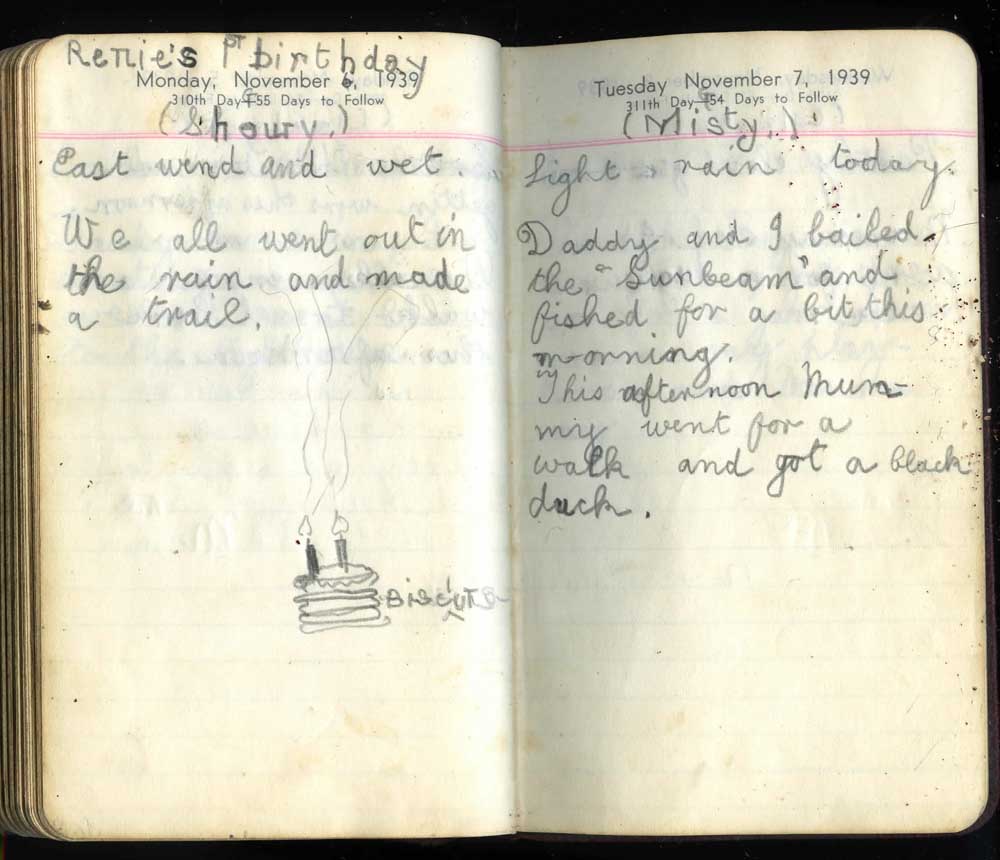 Renie's 1st birthday
Monday, November 6, 1939
310th Day—55 Days to Follow
(Showry.)
East wind and wet.
We all went out in
the rain and made
a trail.
BISCUTS
Tuesday November 7, 1939
311th Day—54 Days to Follow
(Misty.)
Light rain today.
Daddy and I bailed
the "Sunbeam" and
fished for a bit this
morning.
This afternoon Mum-
my went for a
walk and got a black
duck.